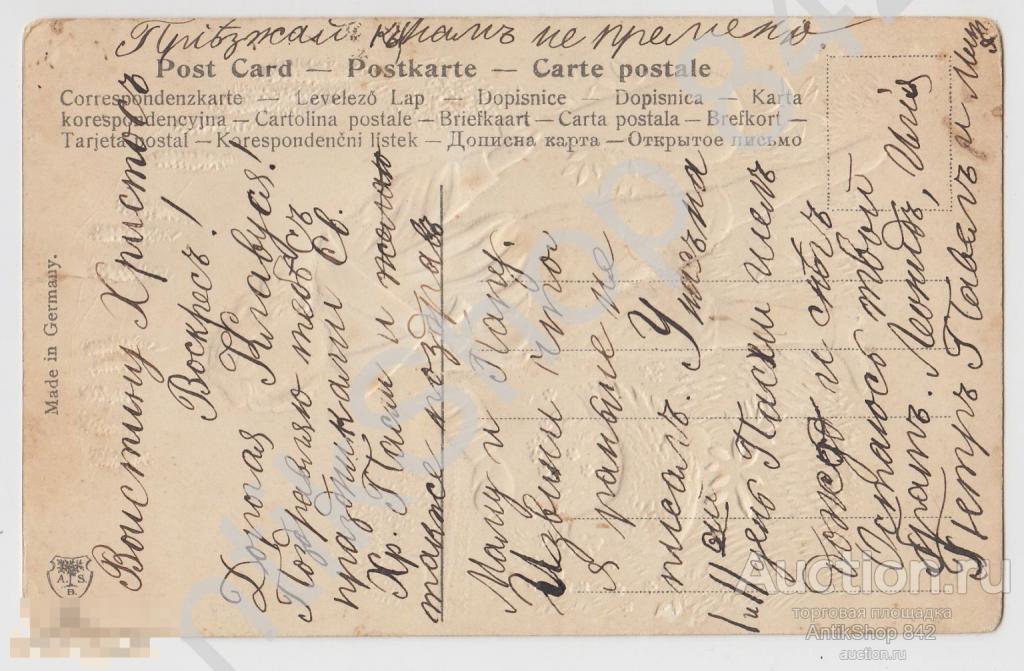 Пріѣзжай къ намъ не премено
Post Card — Postkarte — Carte postale
Correspondenzkarte — Levelező Lap — Dopisnice — Dopisnica — Karta
korespondencyjna — Cartolina postale — Briefkaart — Carta postala — Brefkort —
Tarjeta postal — Korespondenční listek — Дописна карта — Открытое письмо
Made in Germany.
A. S.
B.
Воистину Христосъ
Воскресъ!
Дорогая Клавуся!
Поздравляю тебя съ
праздниками Св.
Хр. Пасхи и
также поздравь
Маму и Папу.
Извини что
я раньше не
писалъ. У насъ на
I и II день Пасхи шелъ
дождь и снѣгъ
Остаюсь твой
Братъ. Леонидъ,
Петръ Павелъ и
Auction.ru
торговая площадка
AntikShop 842
auction.ru
AntikShop 842